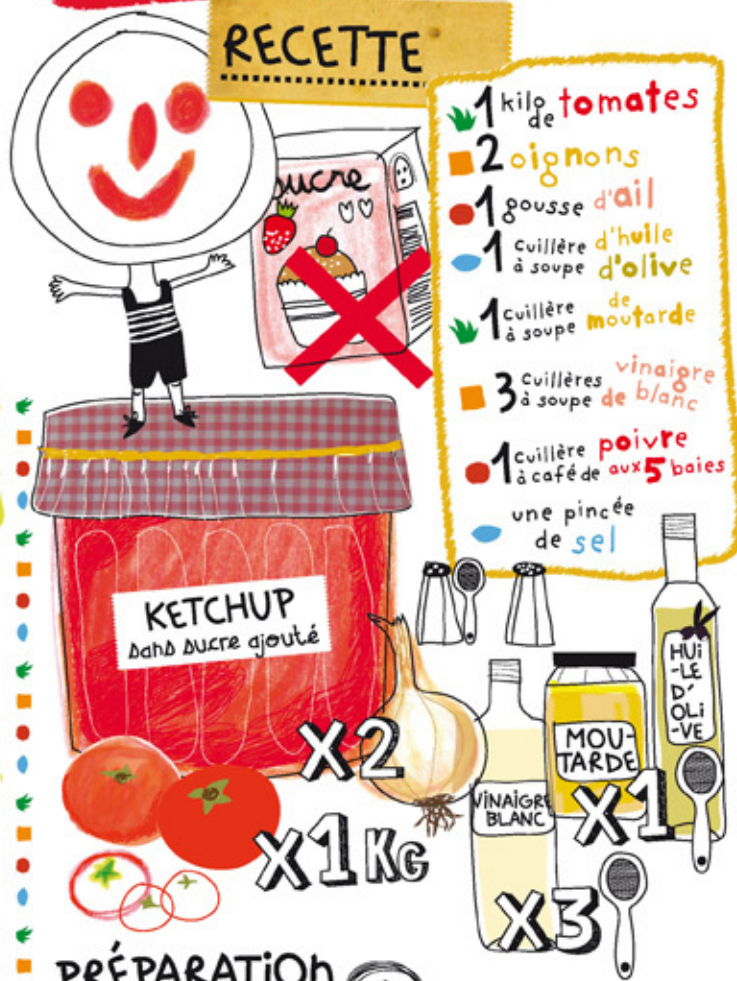 RECETTE
sucre
1 kilo de tomates
2 oignons
1 gousse d'ail
1 cuillère à soupe d'huile d'olive
1 cuillère à soupe de moutarde
3 cuillères à soupe de vinaigre de blanc
1 cuillère à café de poivre aux 5 baies
une pincée
de sel
KETCHUP
sans sucre ajouté
HUi
-LE
D'
OLi
-VE
X2
MOU-
TARDE
X1
VINAIGRE
BLANC
X1 KG
X3
PRÉPARATiON